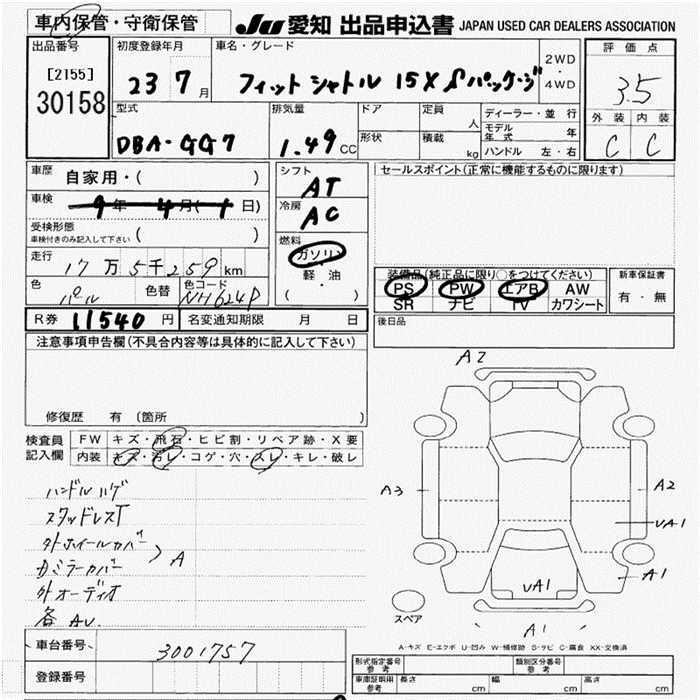 車内保管・守衛保管
JU 愛知 出品申込書 JAPAN USED CAR DEALERS ASSOCIATION
出品番号
[2155]
30158
初度登録年月
23 7 月
車名・グレード
フィットシャトル 15X Sパッケージ
2WD
・
4WD
評価点
3.5
外装 内装
C C
型式
DBA-GG7
排気量
1.49 CC
ドア
形状
定員
人
積載
kg
ディーラー・並行
モデル年式 年
ハンドル 左・右
車歴 自家用・( )
車検 9年 4月(1日)
受検形態
車検付きのみ記入して下さい ( )
走行
17万5千259km
色 パール
色替
色コード NH624P
シフト
AT
冷房
AC
燃料
ガソリン
軽・油
( )
セールスポイント(正常に機能するものに限ります)
装備品(純正品に限り○をつけてください)
PS PW エアB AW
SR ナビ TV カワシート
新車保証書
有・無
R券 11540 円
名変通知期限 月 日
後日品
注意事項申告欄(不具合内容等は具体的に記入して下さい)
修復歴 有 〔箇所 〕
検査員記入欄
FW キズ・飛石・ヒビ割・リペア跡・X要
内装 キズ・汚レ・コゲ・穴・スレ・キレ・破レ
ハンドルハゲ
スタッドレスT
外ホイールカバー
ドミラーカバー
A
外オーディオ
各AU.
A2
A3
A2
UA1
A1
UA1
A1
スペア
A-キズ E-エクボ U-凹み W-補修跡 S-サビ C-腐食 XX-交換済
車台番号 3001757
登録番号
形式指定番号
参考
類別区分番号
参考
車庫証明用
参考
長さ cm
幅 cm
高さ cm